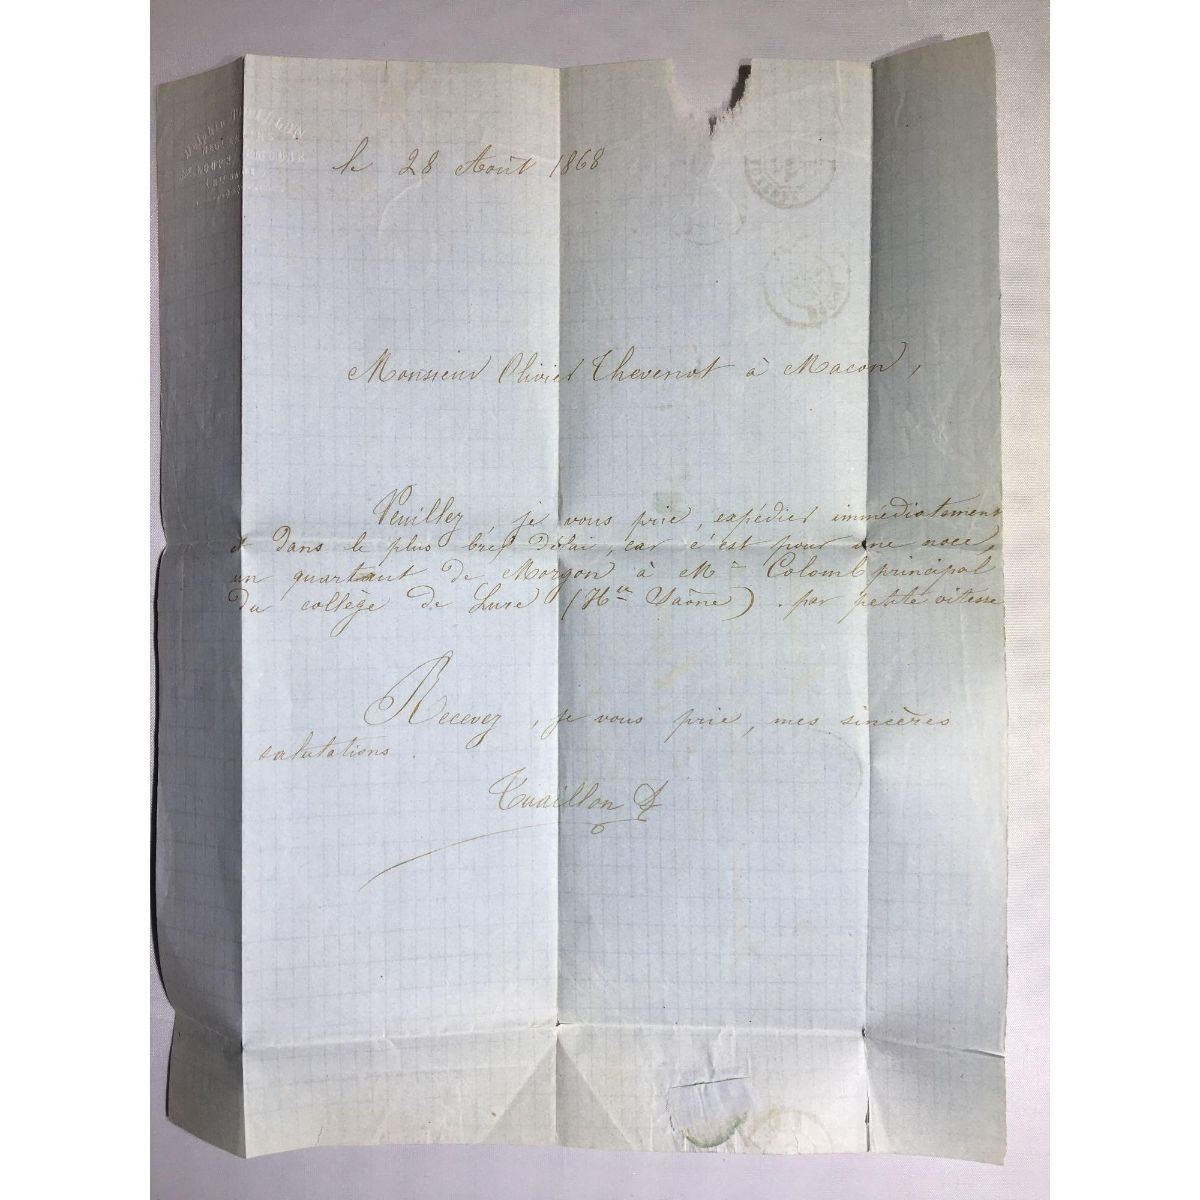 le 28 Août 1868
Monsieur Olivier Thevenot à Macon,
Veuillez, je vous prie, expédier immédiatement
et dans le plus bref délai, car c'est pour une noce,
un quartaut de Morgon à Mr Colomb principal
du collège de Lure (Hte Saône). par petite vitesse
Recevez, je vous prie, mes sincères
salutations.
Tuaillon